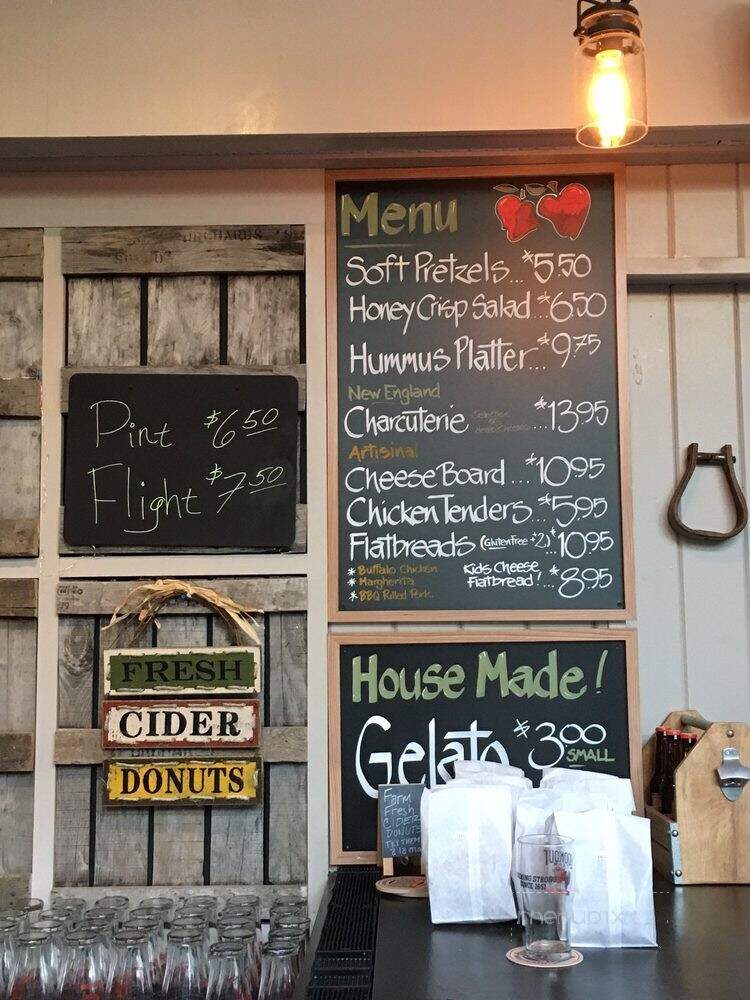 ORCHARDS
Pint $6.50
Flight $7.50
FRESH
CIDER
DONUTS
Menu
Soft Pretzels... $5.50
Honey Crisp Salad... $6.50
Hummus Platter... $9.75
New England
Charcuterie ... $13.95
Artisinal
Cheese Board ... $10.95
Chicken Tenders... $5.95
Flatbreads (Gluten Free $2) $10.95
* Buffalo Chicken
* Margherita
* BBQ Pulled Pork
Kids Cheese
Flatbread!... $8.95
House Made!
Gelato $3.00
SMALL
Farm
Fresh
CIDER
DONUTS
TRY THEM
a la mo
SINCE
menupix